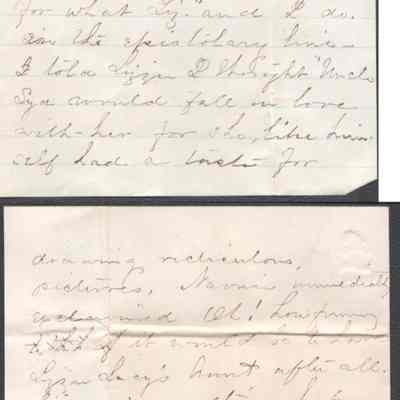 for what Syd and I do.
in the epistolary line
I told Lizzie I thought "Uncle
Syd would fall in love
with her for she, like him-
self had a taste for
drawing rediculous
pictures. Nannie immediately
exclaimed Oh! how funny
if it would be to have
Lizzie Lucy's Aunt after all.